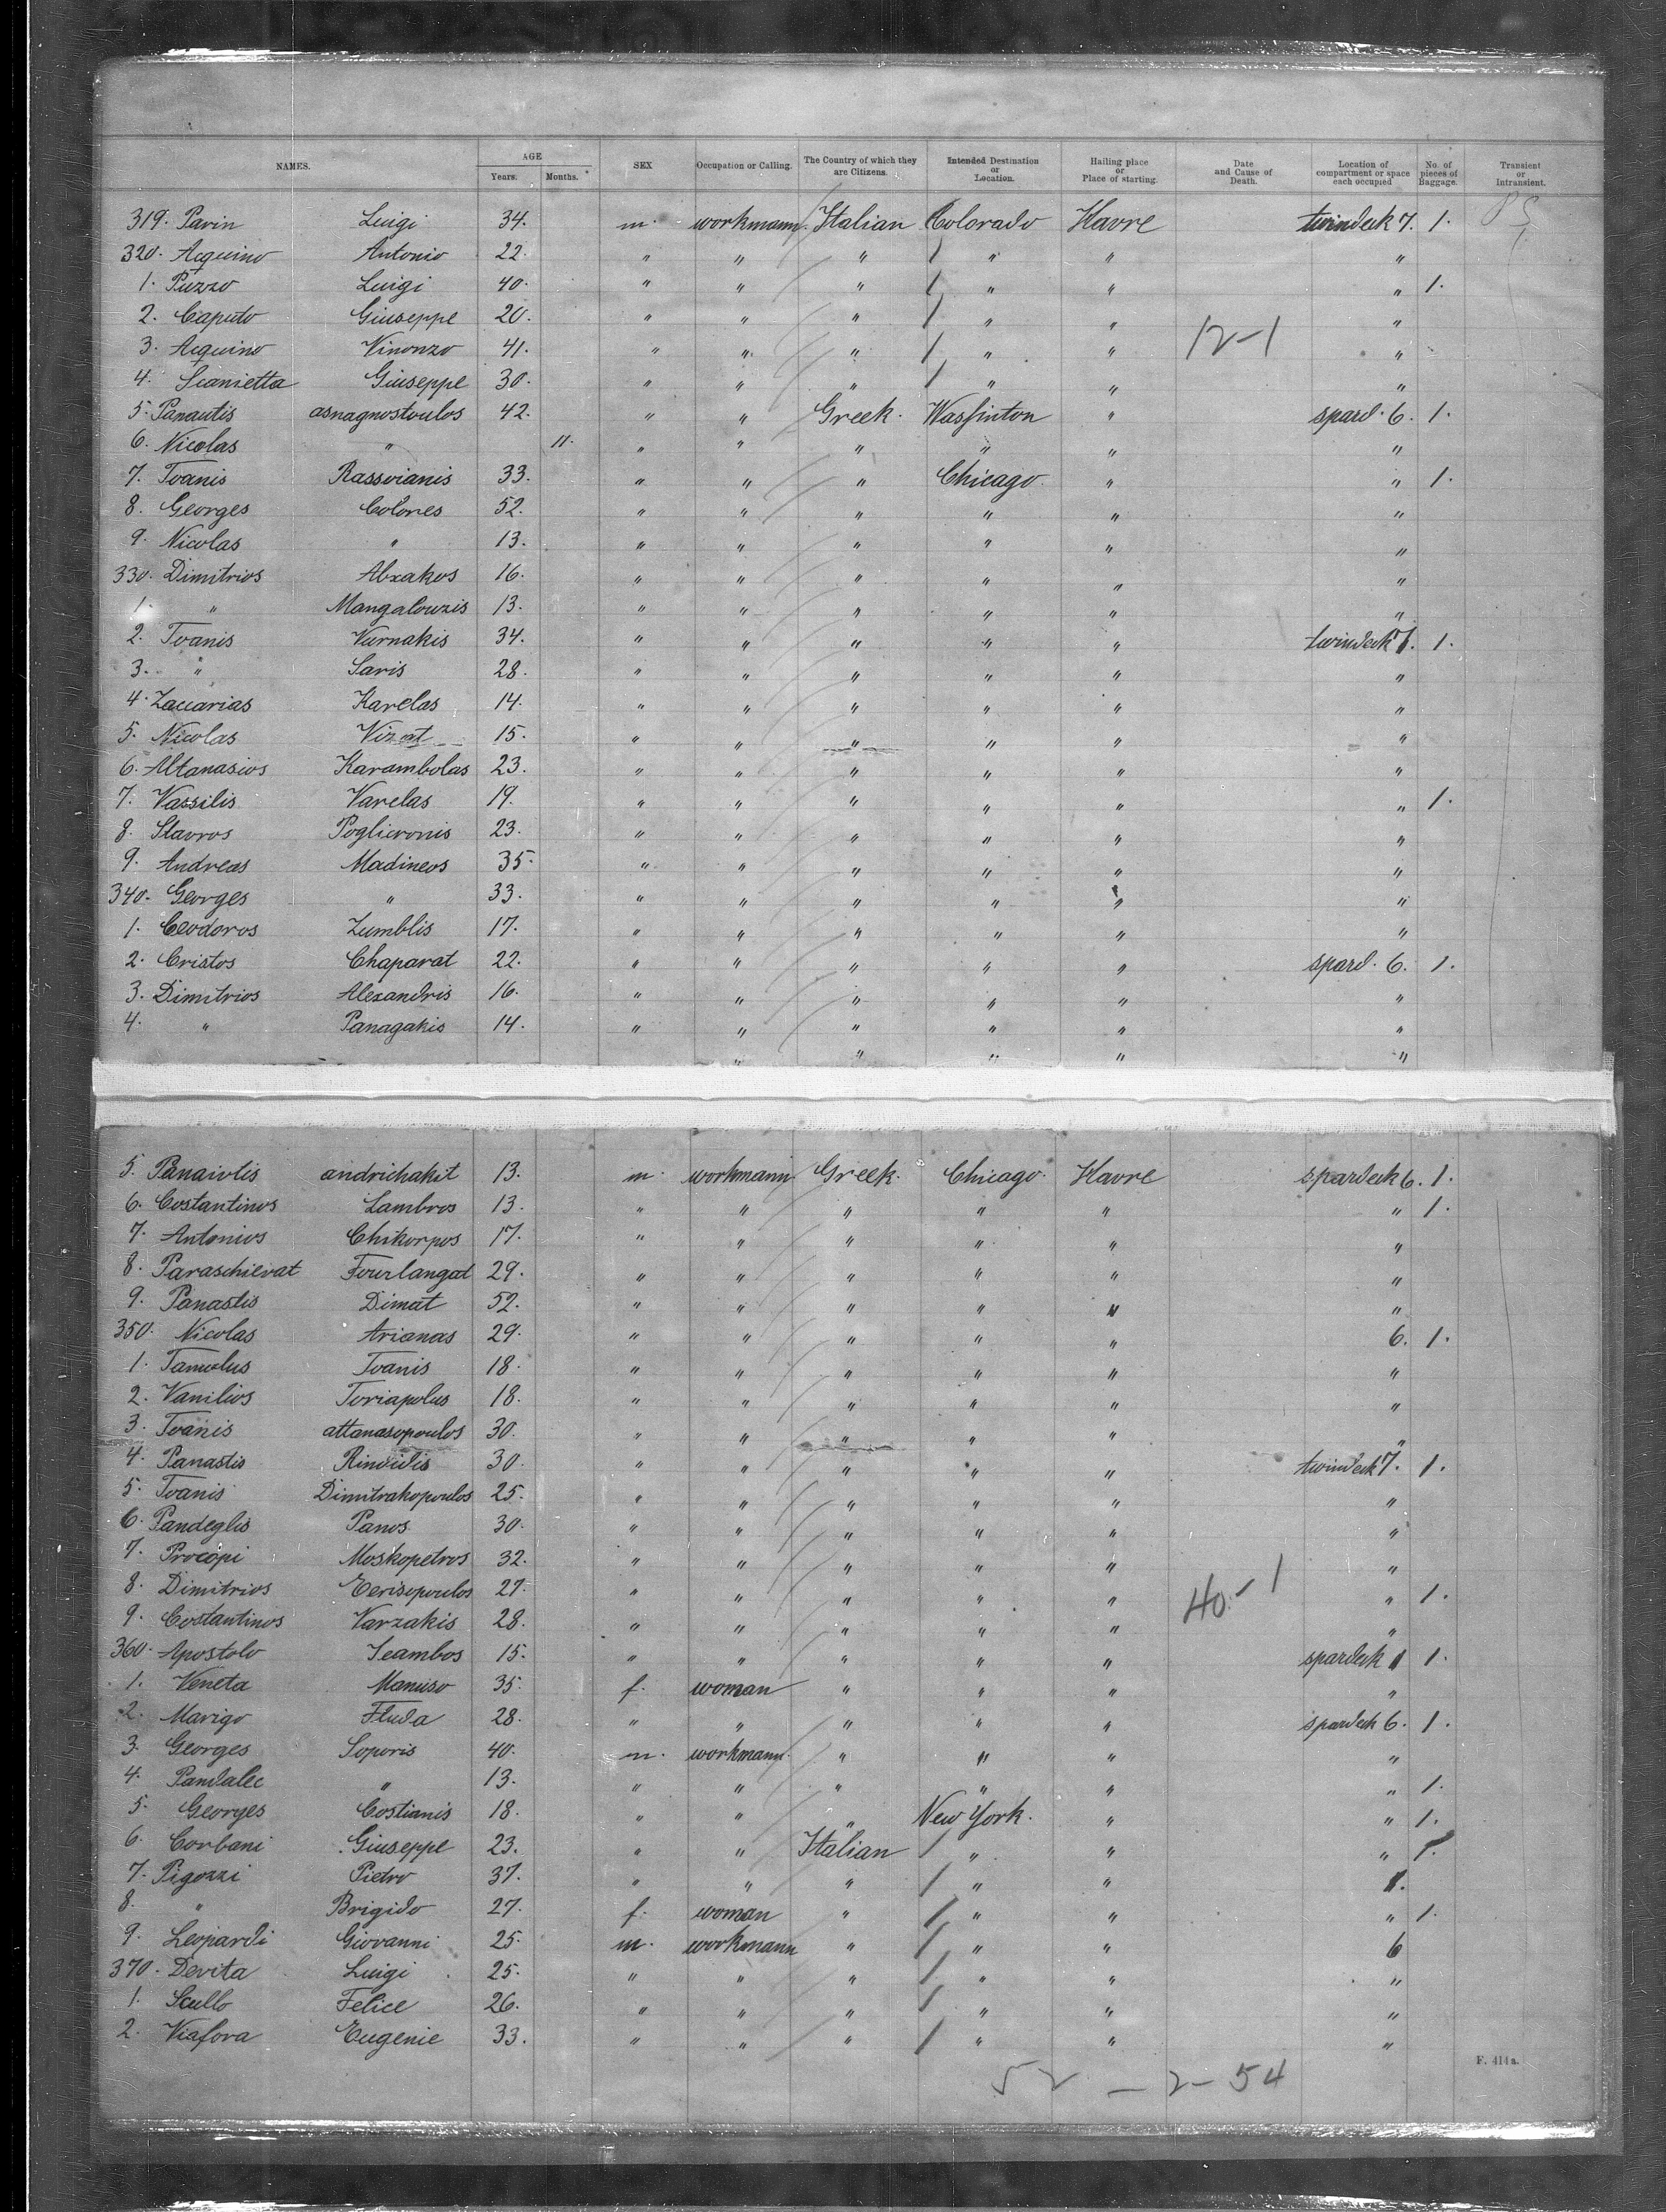 NAMES. AGE Years. Months. SEX Occupation or Calling. The Country of which they are Citizens. Intended Destination or Location. Hailing place or Place of starting. Date and Cause of Death. Location of compartment or space each occupied No. of pieces of Baggage. Transient or Intransient.
319. Pavin Luigi 34. m. workmann. Italian Colorado Havre twindeck 7. 1.
320. Aquino Antonio 22. " " " " " "
1. Puzzo Luigi 40. " " " " " " 1.
2. Caputo Giuseppe 20. " " " " " "
3. Aquino Vinonzo 41. " " " " " 12-1 "
4. Scanietta Giuseppe 30. " " " " " "
5. Panautis asnagnostoulos 42. " " Greek. Wasfinton " spard. 6. 1.
6. Nicolas " 11. " " " " " "
7. Tvanis Rassoianis 33. " " " Chicago. " " 1.
8. Georges Colones 52. " " " " " "
9. Nicolas " 13. " " " " " "
330. Dimitrios Abxakos 16. " " " " " "
1. " Mangalouzis 13. " " " " " "
2. Tvanis Vurnakis 34. " " " " " twindeck 7. 1.
3. " Saris 28. " " " " " "
4. Zaccarias Karelas 14. " " " " " "
5. Nicolas Vizat 15. " " " " " "
6. Altanasios Karambolas 23. " " " " " "
7. Vassilis Varelas 19. " " " " " " 1.
8. Stavros Poglicronis 23. " " " " " "
9. Andreas Madineos 35. " " " " " "
340. Georges " 33. " " " " " "
1. Ceodoros Zumblis 17. " " " " " "
2. Cristos Chaparat 22. " " " " " spard. 6. 1.
3. Dimitrios Alexandris 16. " " " " " "
4. " Panagakis 14. " " " " " "
" " " " "
5. Panaiotis andrichakit 13. m. workmann Greek. Chicago. Havre spardeck 6. 1.
6. Costantinos Lambros 13. " " " " " " 1.
7. Antonios Chikorpos 17. " " " " " "
8. Paraschievat Fourlangat 29. " " " " " "
9. Panastis Dimat 52. " " " " " "
350. Nicolas Arianas 29. " " " " " 6. 1.
1. Tamvlus Tvanis 18. " " " " " "
2. Vanilios Toriapolus 18. " " " " " "
3. Tvanis attanasopoulos 30. " " " " " "
4. Panastis Rinvidis 30. " " " " " twindeck 7. 1.
5. Tvanis Dimitrakopoulos 25. " " " " " "
6. Pandeglis Panos 30. " " " " " "
7. Procopi Moskopetros 32. " " " " " "
8. Dimitrios Eerisopoulos 27. " " " " " 40-1 " 1.
9. Costantinos Varzakis 28. " " " " " "
360. Apostolo Seambos 15. " " " " " spardeck 1 1.
1. Veneta Maniso 35. f. woman " " " "
2. Marigo Fluda 28. " " " " " spardeck 6. 1.
3. Georges Soporis 40. m. workmann. " " " "
4. Pandalec " 13. " " " " " " 1.
5. Georges Costianis 18. " " " New York. " " 1.
6. Corbani Giuseppe 23. " " Italian " " " 1.
7. Pigozzi Pietro 37. " " " " " 1.
8. " Brigido 27. f. woman " " " " 1.
9. Leopardi Giovanni 25. m. workmann " " " 6
370. Devita Luigi 25. " " " " " "
1. Scullo Felice 26. " " " " " "
2. Viafora Eugenie 33. " " " " " "
52 - 2 - 54
F. 414a.